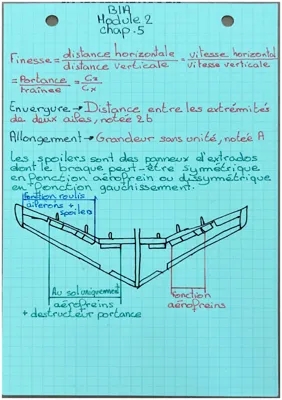 BIA
Module 2
chap. 5
Finesse = distance horizontale / distance verticale = vitesse horizontal / vitesse verticale
= Portance / traînée = Cz / Cx
Envergure → Distance entre les extrémités
de deux ailes, notée 2b
Allongement → Grandeur sans unité, notée A
Les spoilers sont des panneux d'extrados
dont le braquage peut-être symmétrique
en fonction aérofrein ou dissymétrique
en fonction gauchissement.
fonction roulis
ailerons +
spoiler
Au sol uniquement
aérofreins
+ destructeur portance
fonction
aérofreins